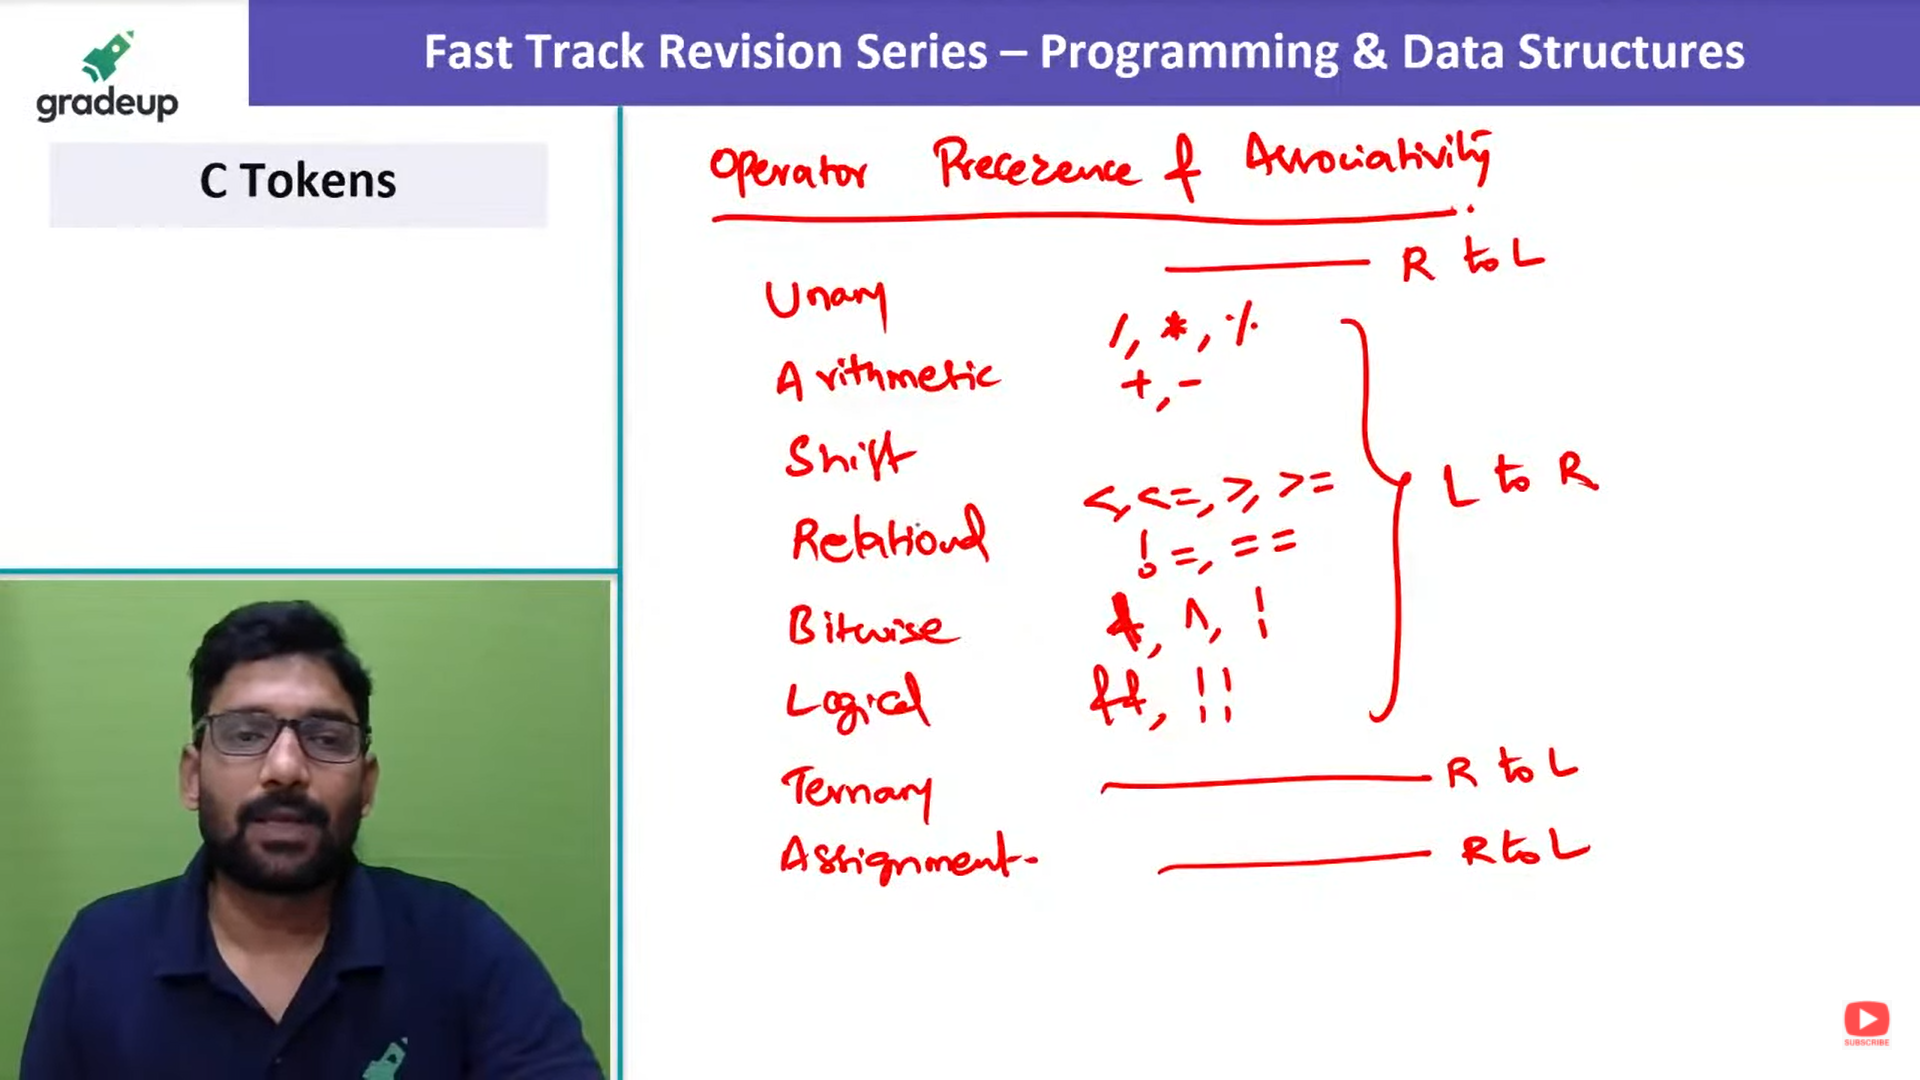 gradeup
Fast Track Revision Series – Programming & Data Structures
C Tokens
Operator Precezence & Associativity
Unary R to L
/, *, %
Arithmetic +, -
Shift
<, <=, >, >=
Relational !=, ==
L to R
Bitwise &, ^, |
Logical &&, ||
Ternary R to L
Assignment R to L
SUBSCRIBE